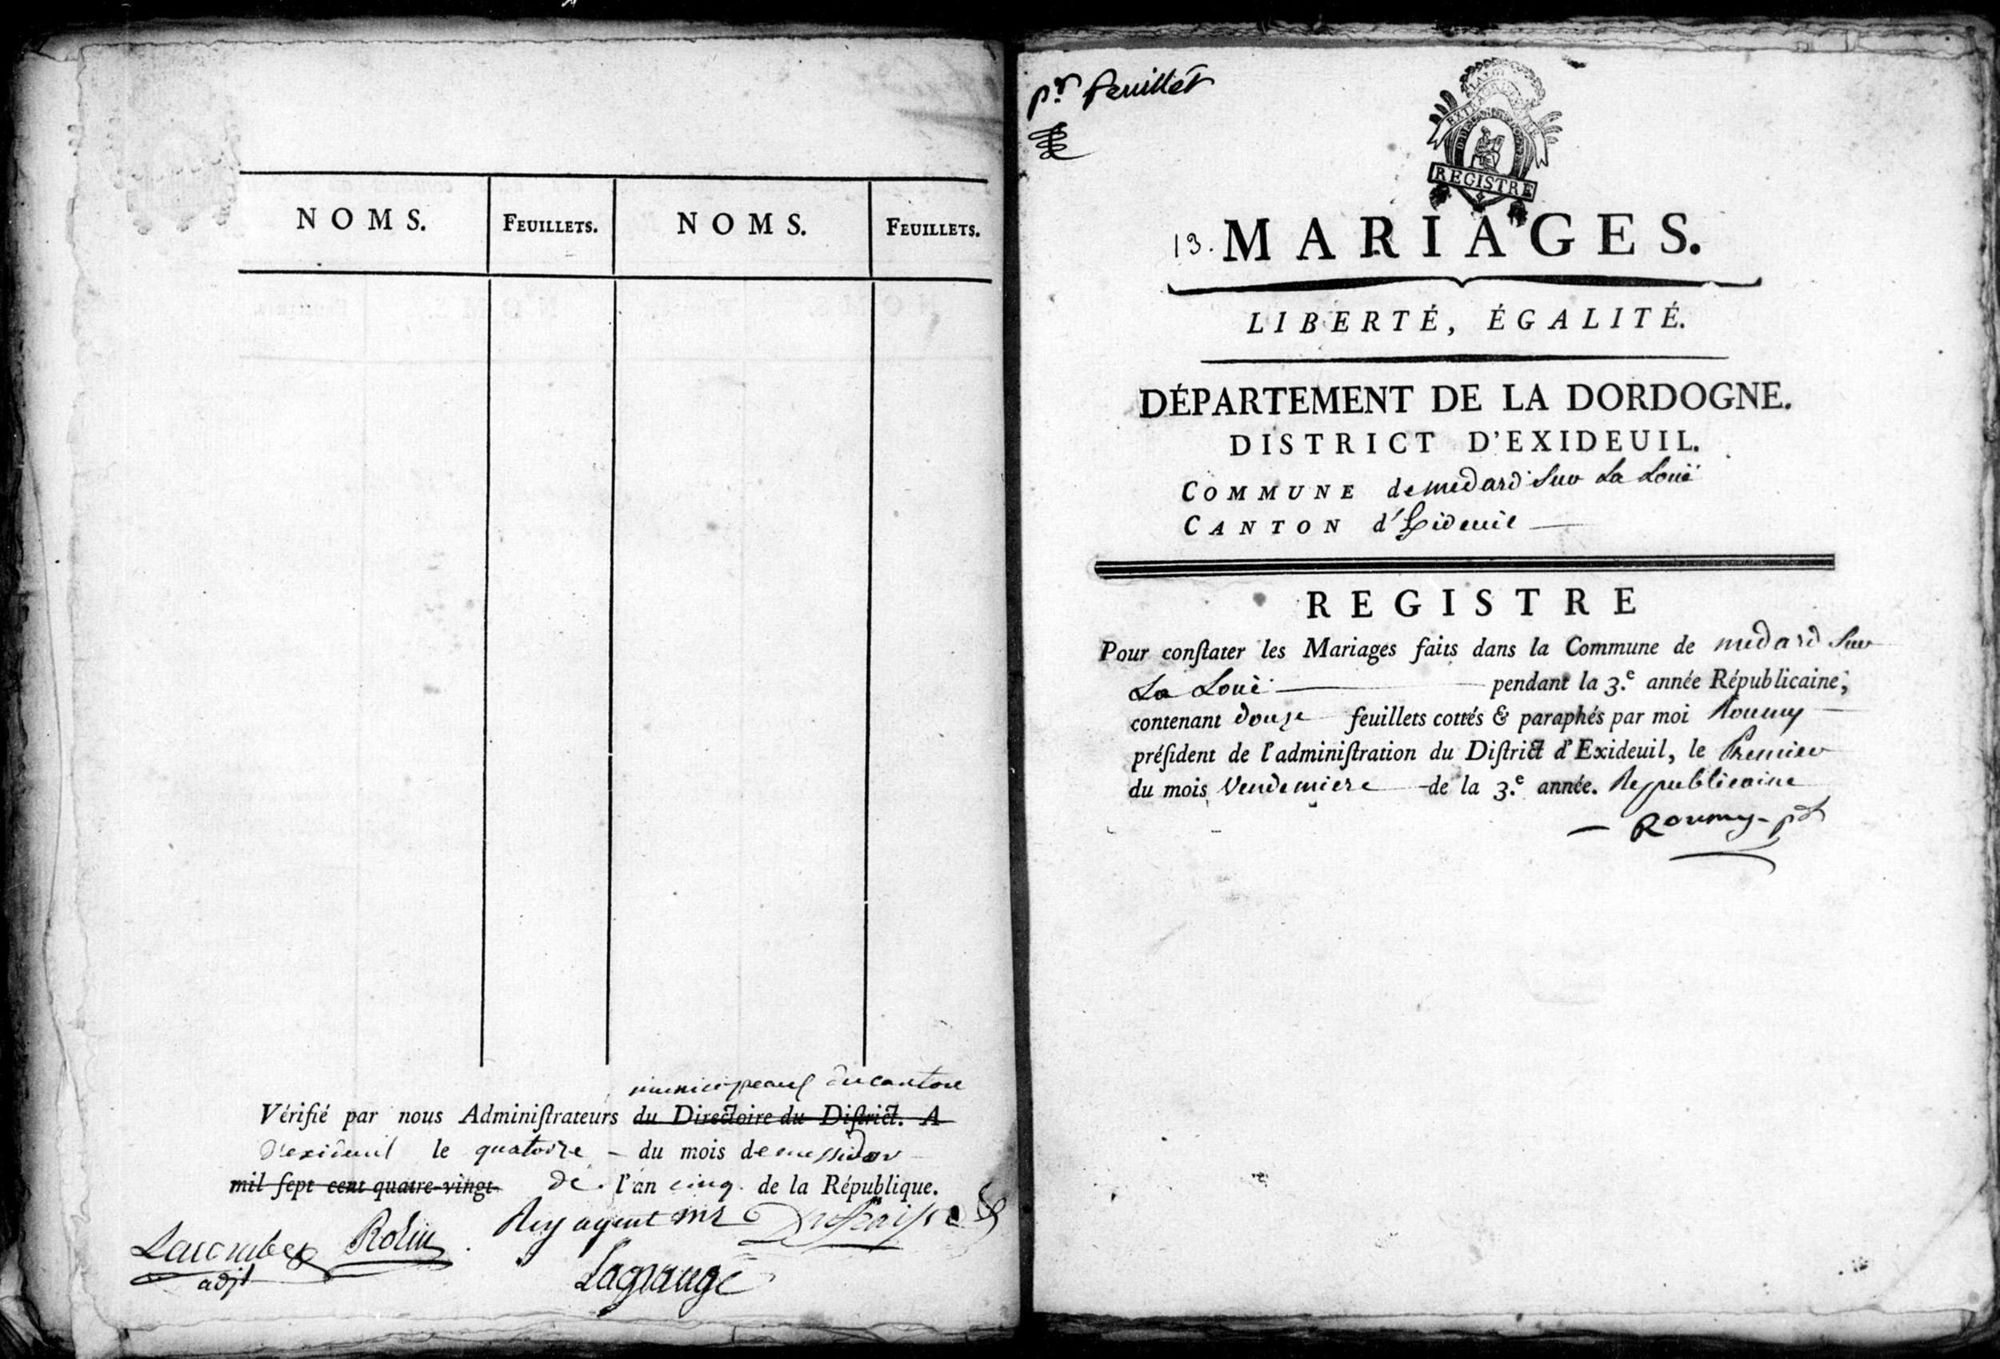 NOMS. FEUILLETS. NOMS. FEUILLETS.
municipeaux du canton
Vérifié par nous Administrateurs du Directoire du District. A
d'exideuil le quatorze du mois de messidor
mil sept cent quatre-vingt de l'an cinq de la République.
Rey agent mr
Lacombe Robin
adjt
Lagrange
pr feuillet
EXIDEUIL
REGISTRE
13. MARIAGES.
LIBERTÉ, ÉGALITÉ.
DÉPARTEMENT DE LA DORDOGNE.
DISTRICT D'EXIDEUIL.
COMMUNE de medard sur La Louë
CANTON d'Exideuil
REGISTRE
Pour constater les Mariages faits dans la Commune de medard sur
La Louë pendant la 3.e année Républicaine;
contenant douze feuillets cottés & paraphés par moi Roumy
président de l'administration du District d'Exideuil, le Premier
du mois Vendemiere de la 3.e année. Republicaine
Roumy pdt